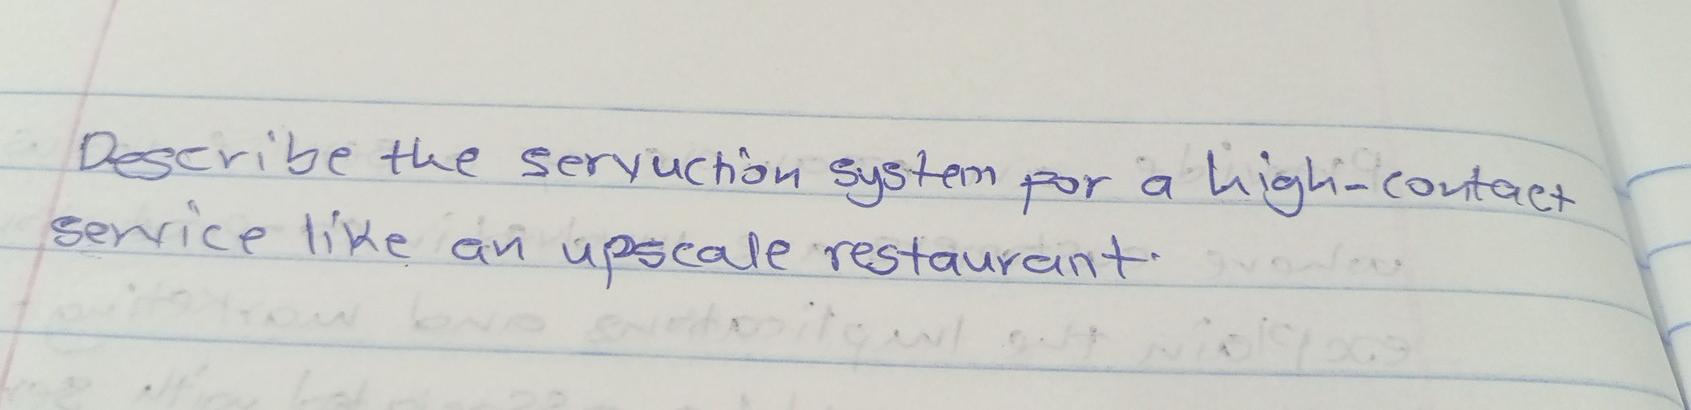 Describe the servuction system for a high-contact
service like an upscale restaurant.